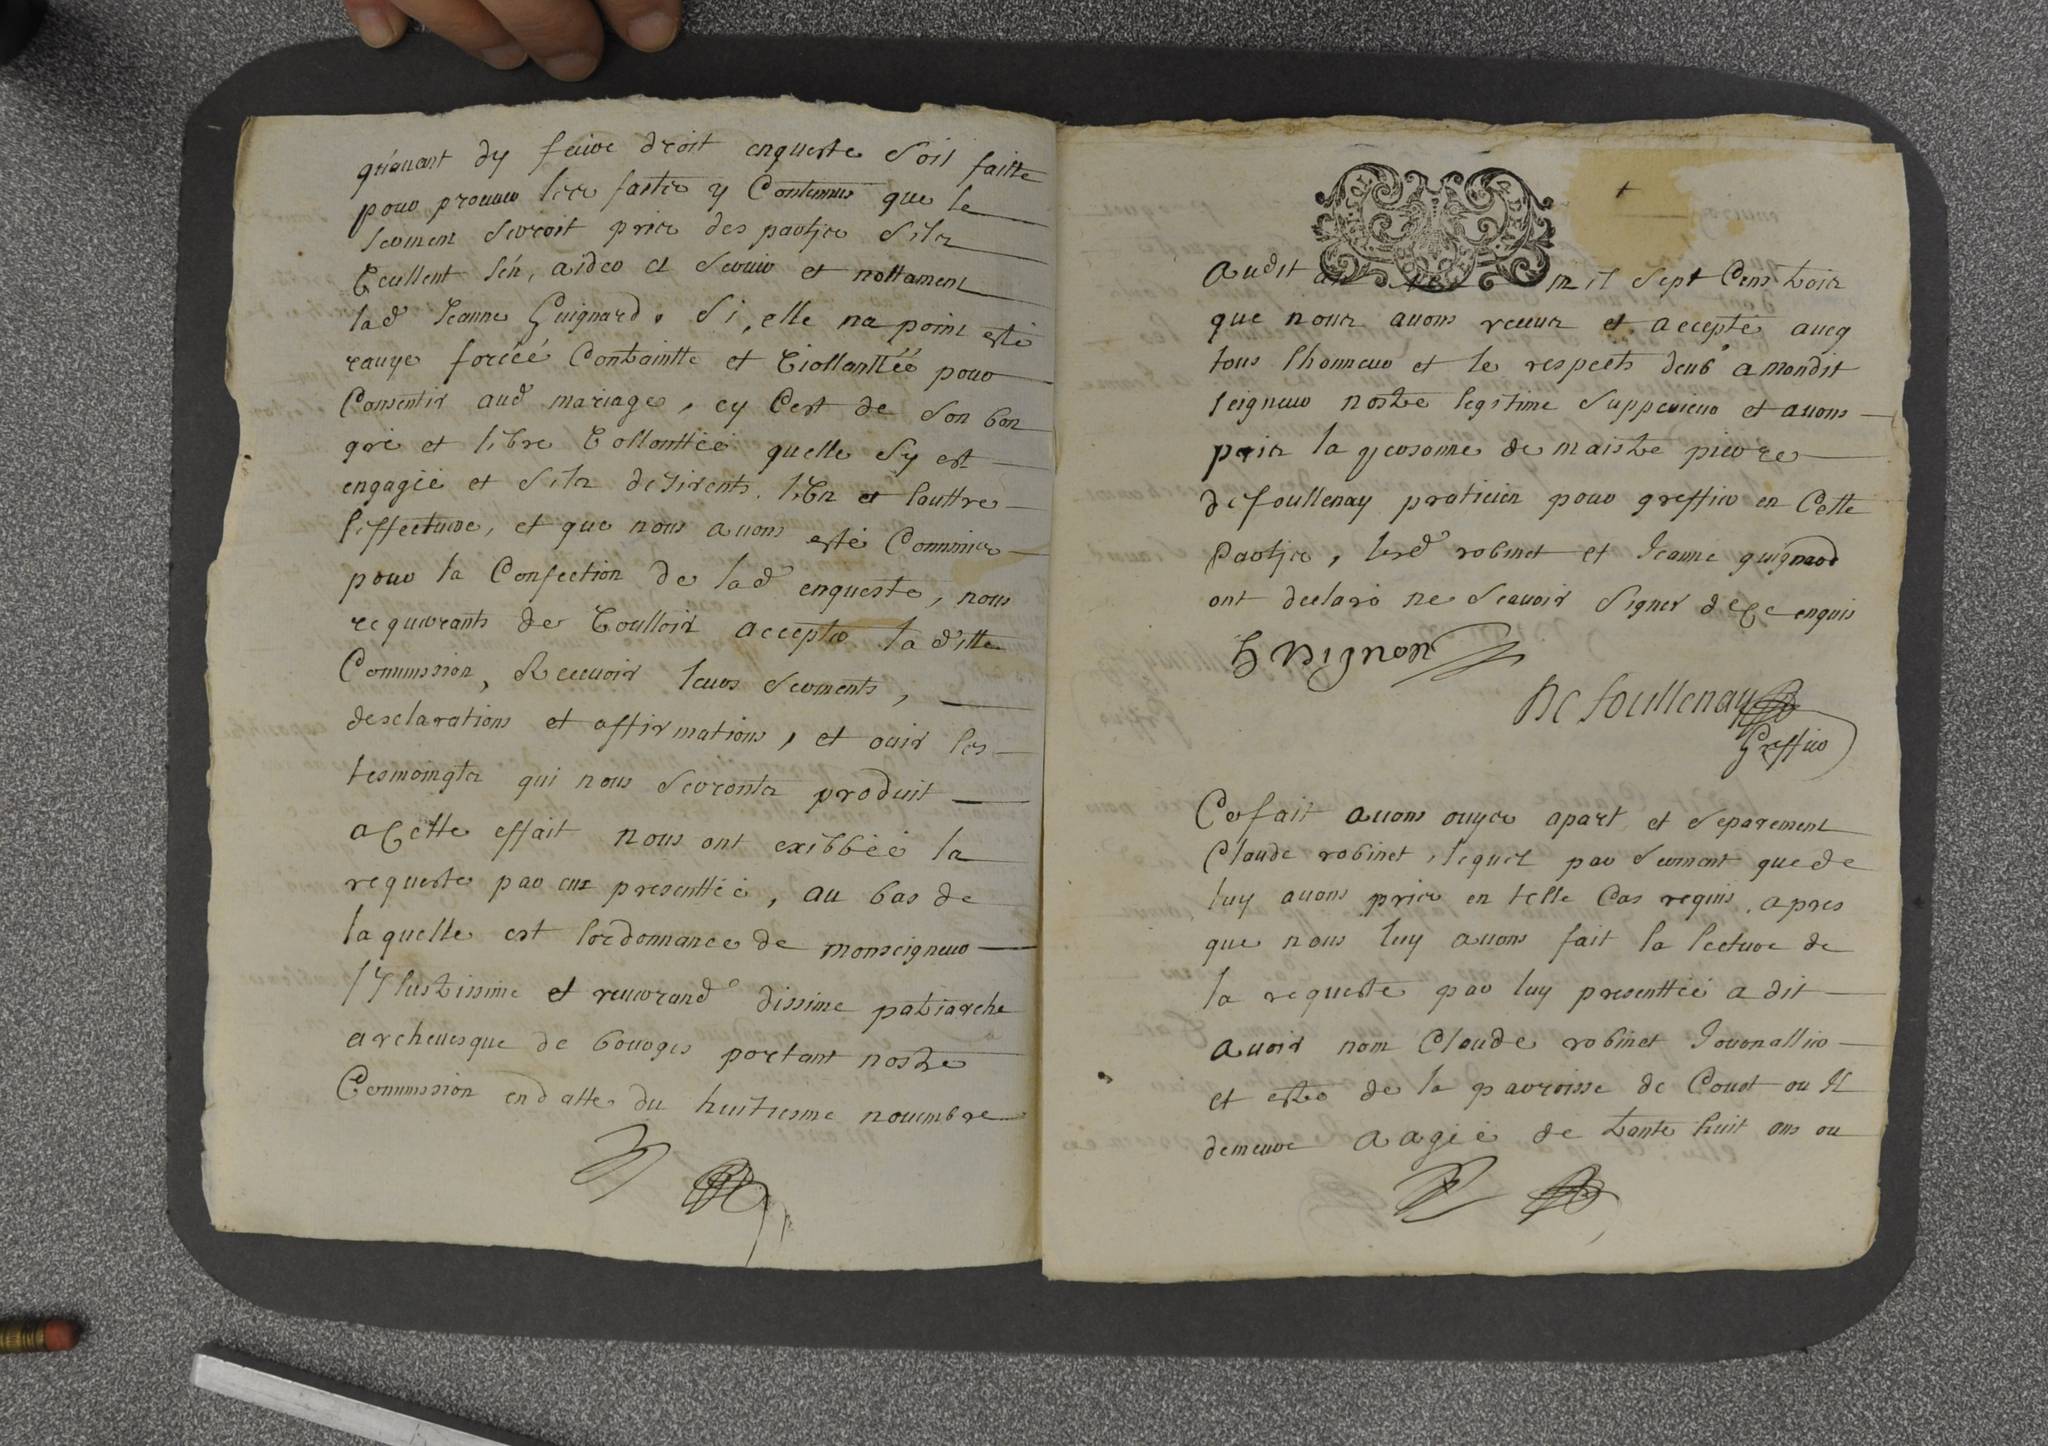 quérant dy faire droit enqueste soit faitte
pour prouver les faites y Contenus que le
serment seroit pris des parties silz
veullent sén, aider et servir et nottament
lad Jeanne Guignard. Si, elle na point esté
ravye forcéé Containtte et viollanttéé pour
Consentir aud mariage, cy Cest de son bon
gré et libre vollonttéé quelle sy est
engagéé et silz desirents. lun et lauttre
leffectuer, et que nous avons esté Commis
pour la Confection de lad enqueste, nous
requerants de voulloir accepter la ditte
Commission, Recevoir leurs serments,
desclarations et affirmations, et ouir les
tesmoingtz qui nous serontz produit
a Cette effait nous ont exibbéé la
requeste par eux presenttéé, au bas de
laquelle est lordonnance de monseigneur
Illustissime et reverand dissime patriarche
archevesque de bourges portant nostre
Commission en datte du huitiesme novembre
+
audit an mil sept Cens trois
que nous avons receue et accepté avecq
tous lhonneur et le respects deub a mondit
seigneur nostre legitime supperieur et avons
pris la personne de maistre pierre
defoullenay praticien pour greffier en Cette
partie, lesd robinet et Jeanne guignard
ont declaré ne scavoir signer de Ce enquis
Guignon
De foullenay
Greffier
Ce fait avons ouyes apart et separement
Claude robinet, lequel par serment que de
luy avons pris en telle Cas requis, apres
que nous luy avons fait la lecture de
la requeste par luy presenttéé a dit
avoir nom Claude robinet Jouonallier
et estre de la parroisse de Coust ou Il
demeure aagéé de trante huit ans ou